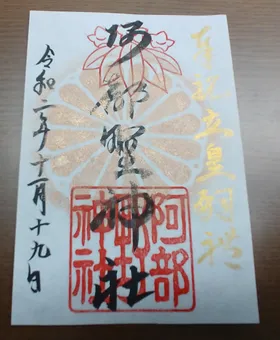 奉祝立皇嗣礼
阿部野神社
阿部野神社
令和二年十一月十九日